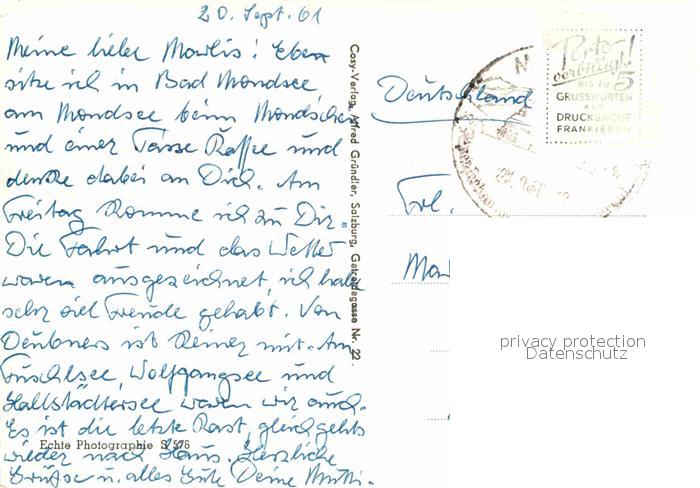 20. Sept. 61
Meine liebe Marlis! Eben
sitze ich in Bad Mondsee
am Mondsee beim Mondschein
und einer Tasse Kaffee und
denke dabei an Dich. Am
Freitag komme ich zu Dir.
Die Fahrt und das Wetter
waren ausgezeichnet, ich habe
sehr viel Freude gehabt. Von
Deubners ist keiner mit. Am
Fuschlsee, Wolfgangsee und
Hallstädtersee waren wir auch.
Es ist die letzte Rast, gleich gehts
wieder nach Haus. Herzliche
Grüße u. alles Gute Deine Mutti.
Echte Photographie S 576
Cosy-Verlag, Alfred Gründler, Salzburg, Getreidegasse Nr. 22.
Deutschland
Porto
verbilligt!
BIS ZU 5
GRUSSWORTEN
ALS
DRUCKSACHE
FRANKIEREN
Frl.
Mar
privacy protection
Datenschutz